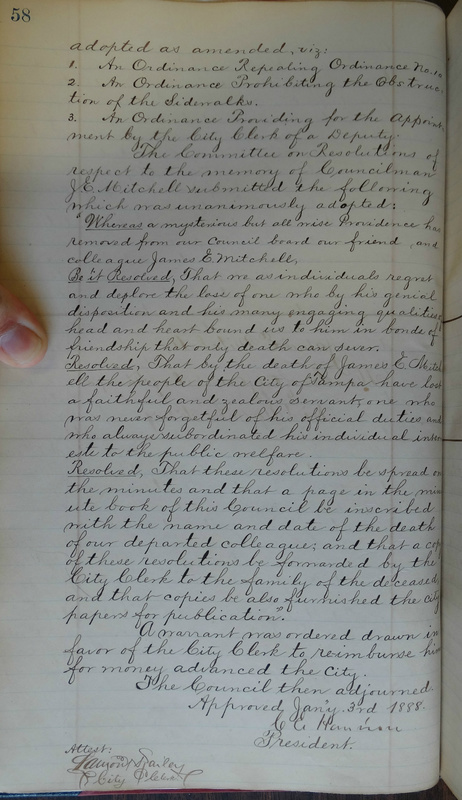 58
adopted as amended, viz:
1. An Ordinance Repealing Ordinance No. 10
2. An Ordinance Prohibiting the Obstruc-
tion of the Sidewalks.
3. An Ordinance Providing for the Appoint-
ment by the City Clerk of a Deputy.
The Committee on Resolutions of
respect to the memory of Councilman
J.E. Mitchell submitted the following
which was unanimously adopted:
"Whereas a mysterious but all wise Providence has
removed from our Council board our friend and
colleague James E Mitchell,
Be it Resolved, That we as individuals regret
and deplore the loss of one who by his genial
disposition and his many engaging qualities
head and heart bound us to him in bonds of
friendship that only death can sever.
Resolved, That by the death of James E. Mitch
ell the people of the City of Tampa have lost
a faithful and zealous servant, one who
was never forgetful of his official duties and
who always subordinated his individual inter
ests to the public welfare.
Resolved, That these resolutions be spread on
the minutes and that a page in the min
ute book of this Council be inscribed
with the name and date of the death
of our departed colleague; and that a copy
of these resolutions be forwarded by the
City Clerk to the family of the deceased
and that copies be also furnished the city
papers for publication."
A warrant was ordered drawn in
favor of the City Clerk to reimburse him
for money advanced the City.
The Council then adjourned.
Approved Jan'y. 3rd 1888.
President.
Attest:
City Clerk